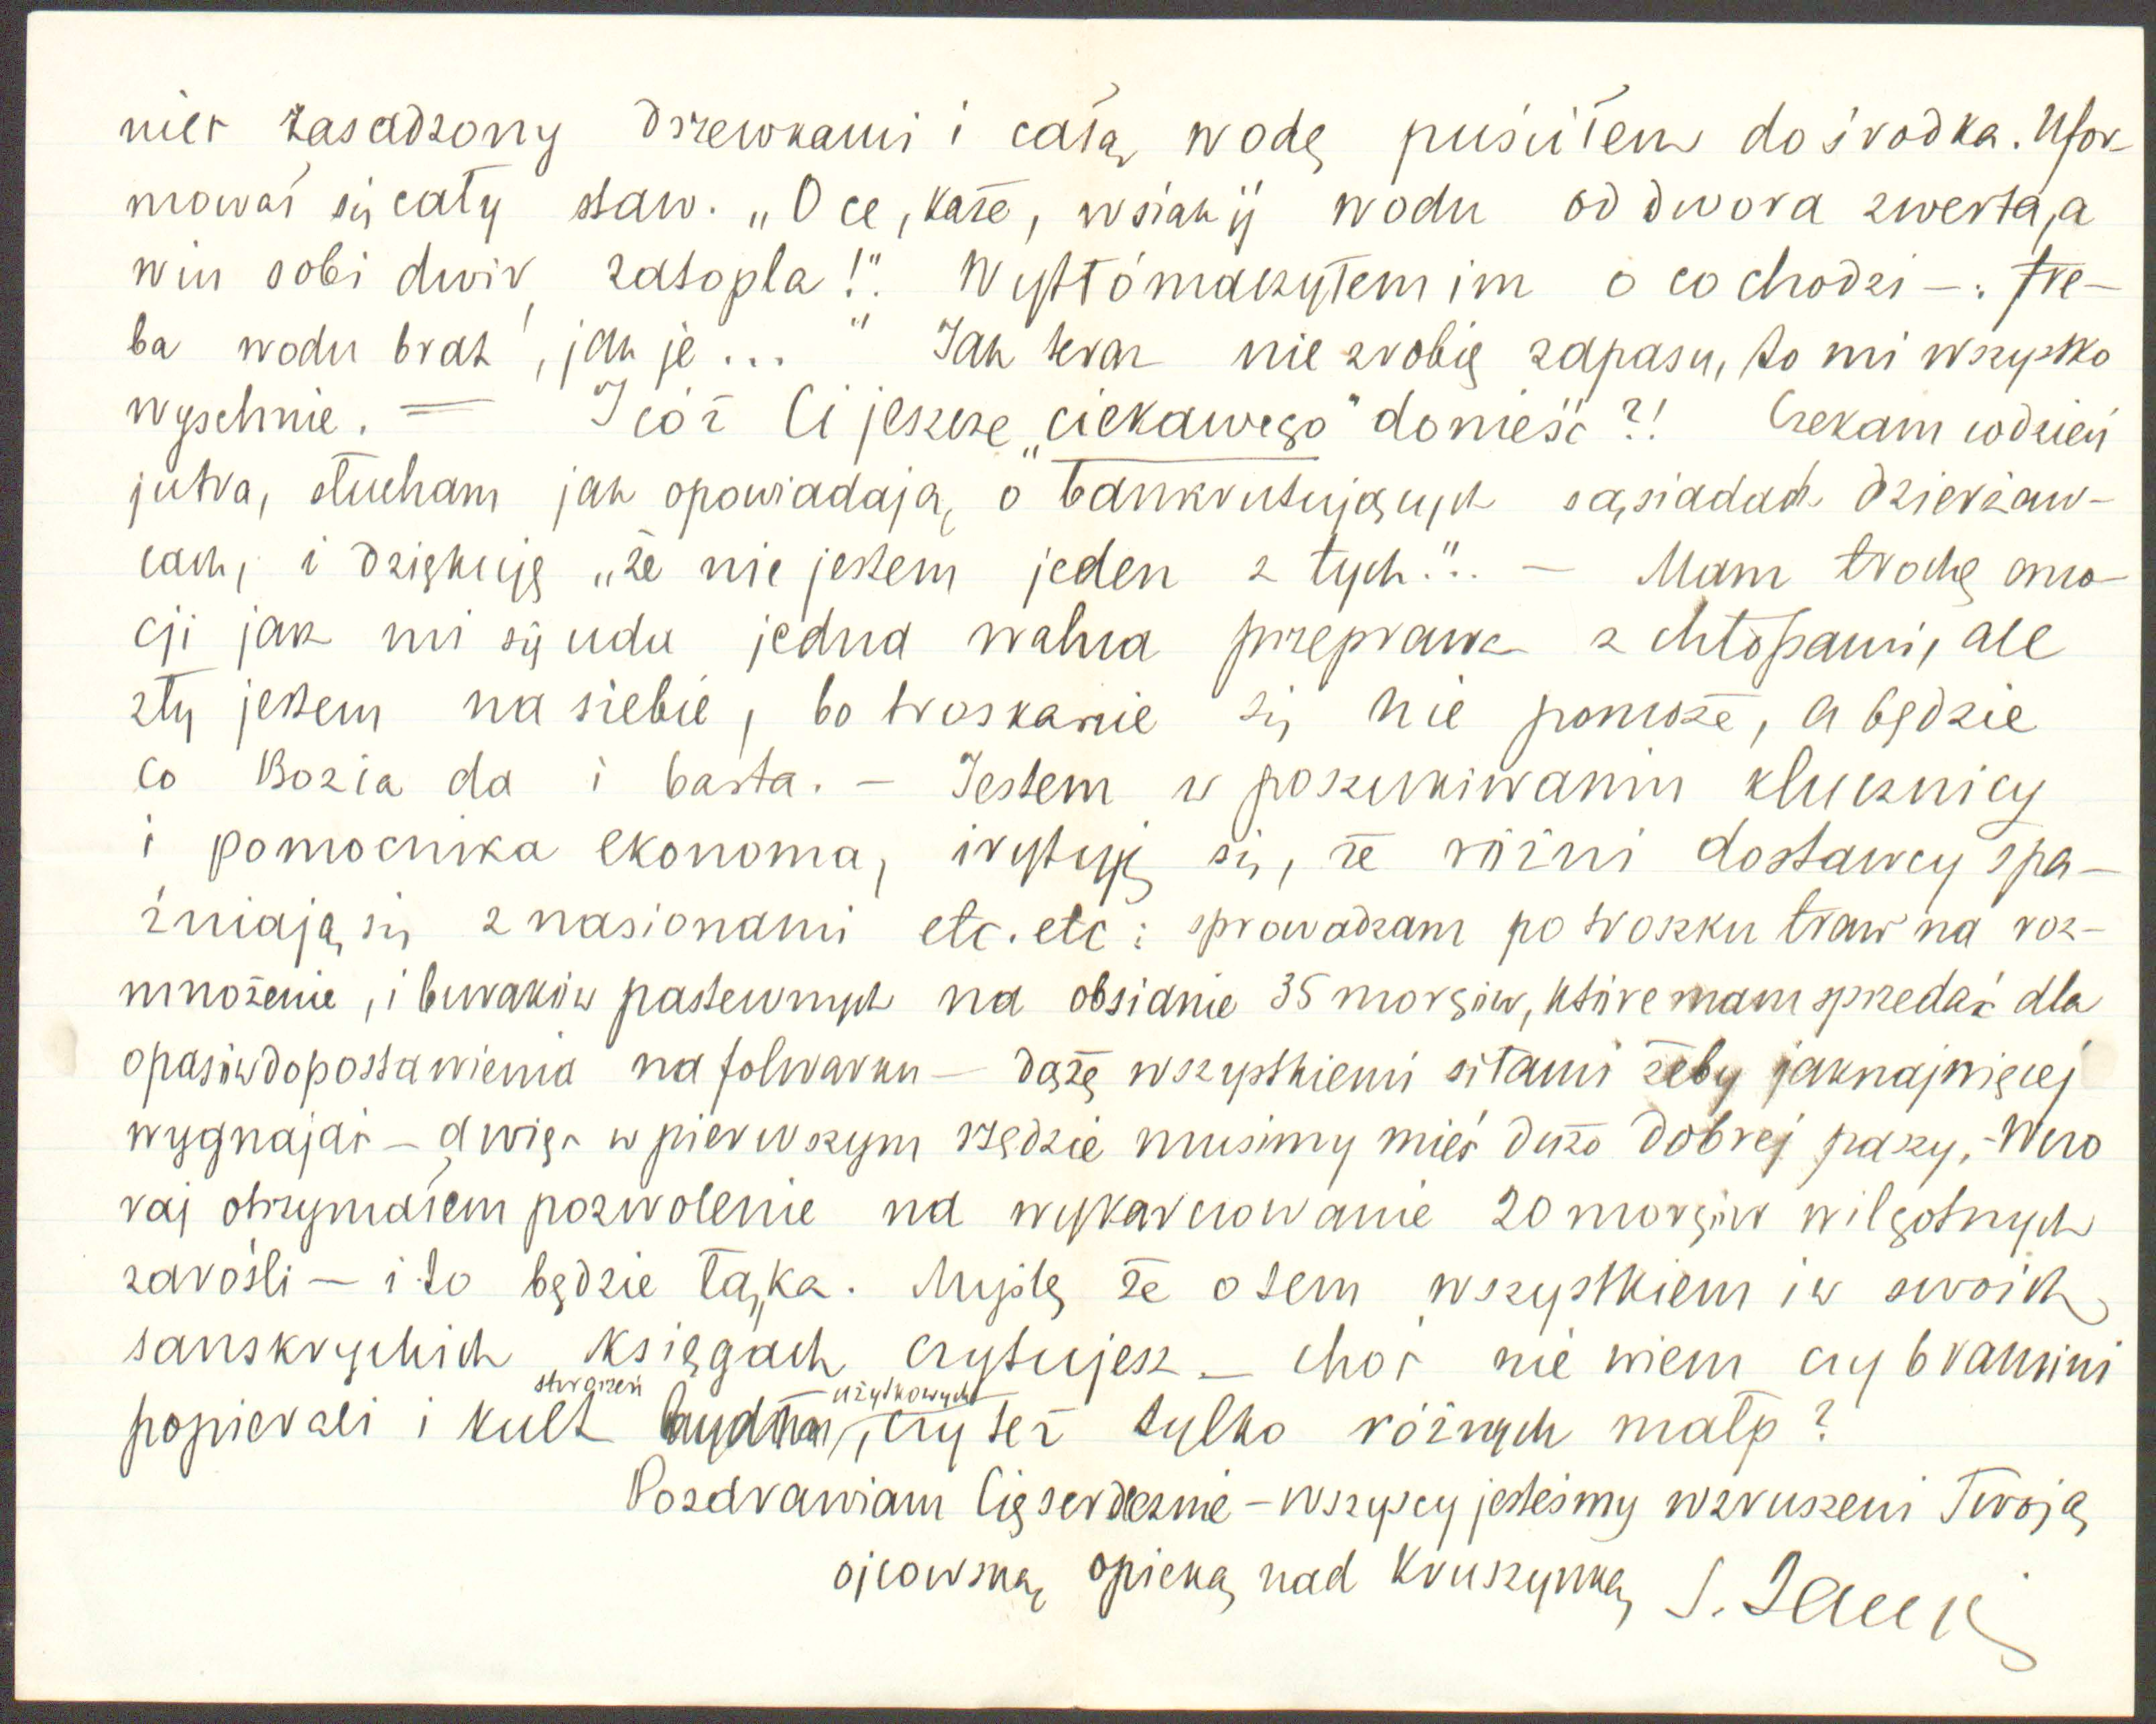 nier zasadzony drzewkami i całą wodę puściłem do środka. Ufor-
mował się cały staw. „O ce, każe, wsiakij wodu od dwora zwerta, a
win sobi dwir zatopla!". Wytłómaczyłem im o co chodzi —: tre-
ba wodu brat', jak je..." Jak teraz nie zrobię zapasu, to mi wszystko
wyschnie. = I cóż Ci jeszcze „ciekawego" donieść?! Czekam codzień
jutra, słucham jak opowiadają o bankrutujących sąsiadach dzierżaw-
cach, i dziękuję „że nie jestem jeden z tych.".. — Mam trochę emo-
cji jak mi się uda jedna walna przeprawa z chłopami, ale
zły jestem na siebie, bo troskanie się nie pomoże, a będzie
co Bozia da i basta. — Jestem w poszukiwaniu klucznicy
i pomocnika ekonoma, irytuję się, że różni dostawcy spa-
źniają się z nasionami etc. etc: sprowadzam po troszku traw na roz-
mnożenie, i buraków pastewnych na obsianie 35 morgów, które mam sprzedać dla
opasów do postawienia na folwarku — dążę wszystkiemi siłami żeby jaknajwięcej
wygnajać — a więc w pierwszym rzędzie musimy mieć dużo dobrej paszy. - Wczo
raj otrzymałem pozwolenie na wykarczowanie 20 morgów wilgotnych
zarośli — i to będzie łąka. Myślę że o tem wszystkiem i w swoich
sanskryckich księgach czytujesz — choć nie wiem czy bramini
popierali i kult stworzeń użytkowych, czy też tylko różnych małp?
Pozdrawiam Cię serdecznie — wszyscy jesteśmy wzruszeni Twoją
ojcowską opieką nad Kruszynką